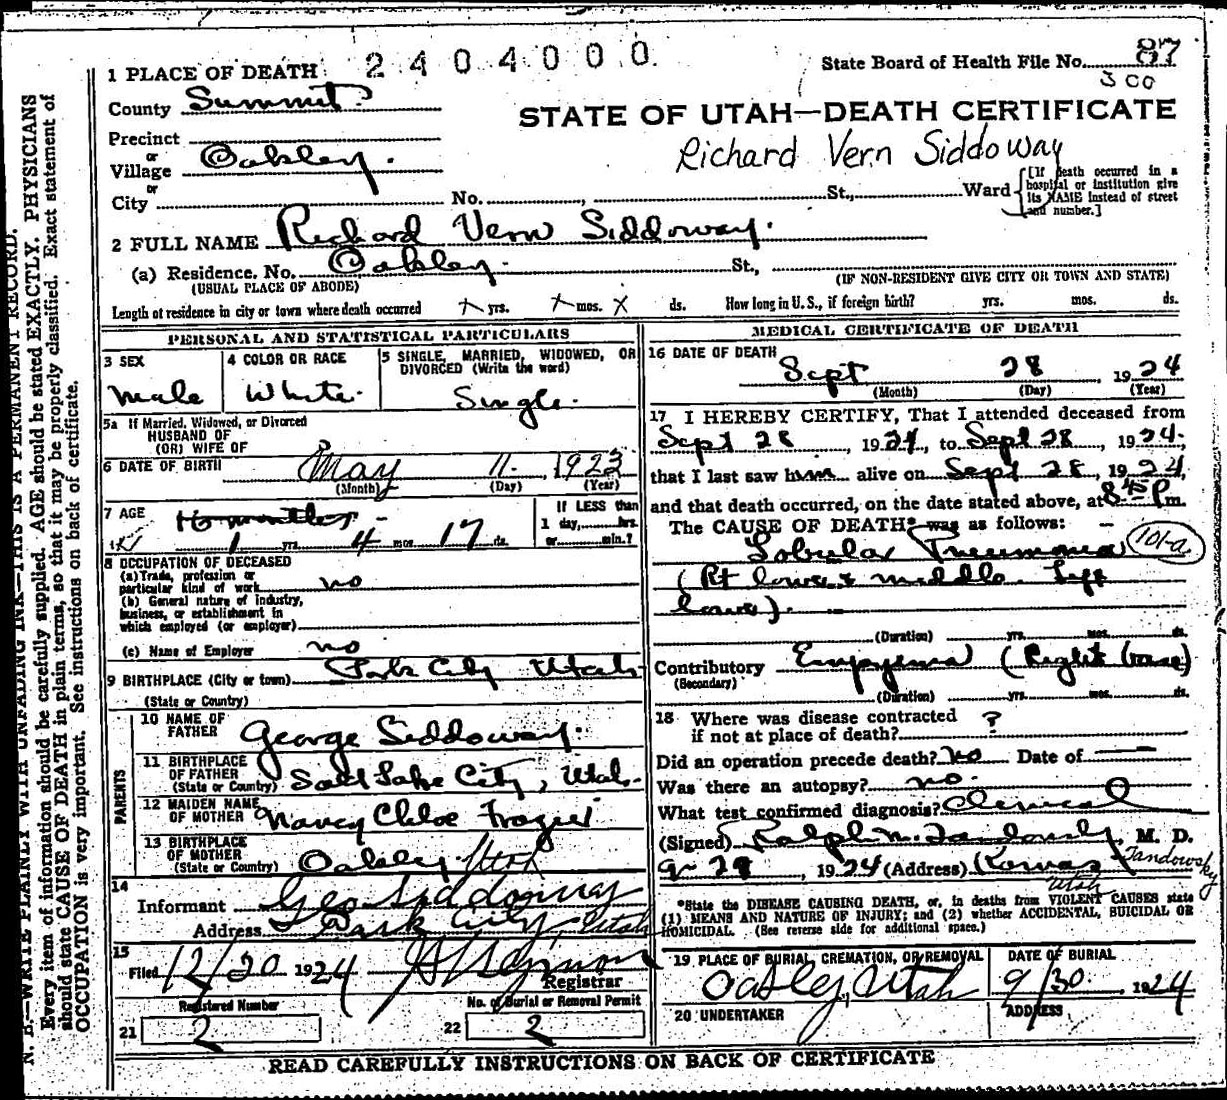 2404000.
State Board of Health File No. 87
300
1 PLACE OF DEATH
County Summit
STATE OF UTAH—DEATH CERTIFICATE
Richard Vern Siddoway
Precinct
or
Village Oakley.
or
City No. , St., Ward
[If death occurred in a
hospital or institution give
its NAME instead of street
and number.]
2 FULL NAME Richard Vern Siddoway.
(a) Residence. No. Oakley. St.,
(USUAL PLACE OF ABODE) (IF NON-RESIDENT GIVE CITY OR TOWN AND STATE)
Length of residence in city or town where death occurred x yrs. x mos. x ds. How long in U. S., if foreign birth? yrs. mos. ds.
PERSONAL AND STATISTICAL PARTICULARS
3 SEX
Male
4 COLOR OR RACE
White.
5 SINGLE, MARRIED, WIDOWED, OR
DIVORCED (Write the word)
Single.
5a If Married, Widowed, or Divorced
HUSBAND OF
(OR) WIFE OF
6 DATE OF BIRTH May 11. , 1923
(Month) (Day) (Year)
7 AGE 16 months
1 yrs. 4 mos. 17 ds.
If LESS than
1 day, hrs.
or min.?
8 OCCUPATION OF DECEASED
(a) Trade, profession or
particular kind of work no
(b) General nature of industry,
business, or establishment in
which employed (or employer)
(c) Name of Employer no
9 BIRTHPLACE (City or town) Park City Utah
(State or Country)
PARENTS
10 NAME OF
FATHER George Siddoway.
11 BIRTHPLACE
OF FATHER
(State or Country) Salt Lake City, Utah.
12 MAIDEN NAME
OF MOTHER Nancy Chloe Frazier
13 BIRTHPLACE
OF MOTHER
(State or Country) Oakley Utah
14
Informant Geo Siddoway
Address Park City, Utah
15
Filed 12/20 1924
Registrar
Registered Number
21 2
No. of Burial or Removal Permit
22 2
MEDICAL CERTIFICATE OF DEATH
16 DATE OF DEATH
Sept 28 1924
(Month) (Day) (Year)
17 I HEREBY CERTIFY, That I attended deceased from
Sept 28 , 1924, to Sept 28 , 1924,
that I last saw him alive on Sept 28 , 1924,
and that death occurred, on the date stated above, at 8 45 Pm
The CAUSE OF DEATH* was as follows:
Lobular Pneumonia 101-a
(Rt lower & middle. Left
lower).
(Duration) yrs. mos. ds.
Contributory Empyema (Right lower)
(Secondary)
(Duration) yrs. mos. ds.
18 Where was disease contracted
if not at place of death? ?
Did an operation precede death? No Date of —
Was there an autopsy? no.
What test confirmed diagnosis? Clinical
(Signed) Ralph M. Tandowsky, M. D.
Tandowsky
9-29 , 1924 (Address) Kamas
Utah
*State the DISEASE CAUSING DEATH, or, in deaths from VIOLENT CAUSES state
(1) MEANS AND NATURE OF INJURY; and (2) whether ACCIDENTAL, SUICIDAL OR
HOMICIDAL. (See reverse side for additional space.)
19 PLACE OF BURIAL, CREMATION, OR REMOVAL
Oakley, Utah
DATE OF BURIAL
9/30 , 1924
20 UNDERTAKER
ADDRESS
READ CAREFULLY INSTRUCTIONS ON BACK OF CERTIFICATE
N. B.—WRITE PLAINLY WITH UNFADING INK—THIS IS A PERMANENT RECORD.
Every item of information should be carefully supplied. AGE should be stated EXACTLY. PHYSICIANS
should state CAUSE OF DEATH in plain terms, so that it may be properly classified. Exact statement of
OCCUPATION is very important. See instructions on back of certificate.